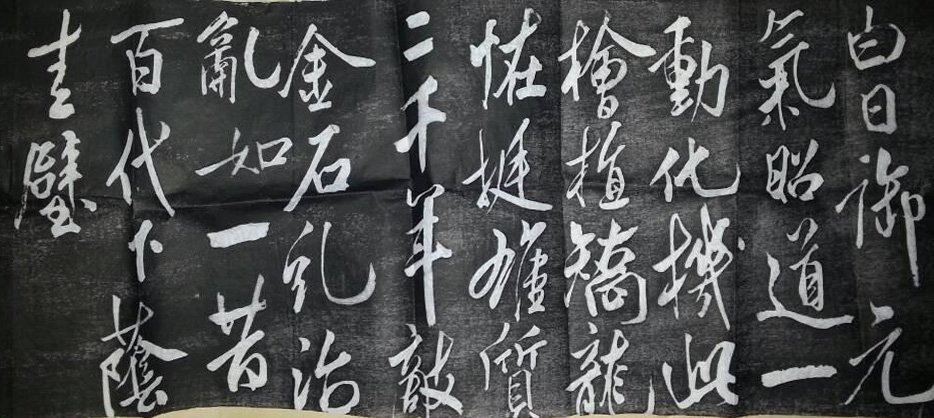 白日御元
氣昭道一
動化機此
檜植矯龍
恠挺雄質
二千年敵
金石糺治
亂如一昔
百代下蔭
圭璧